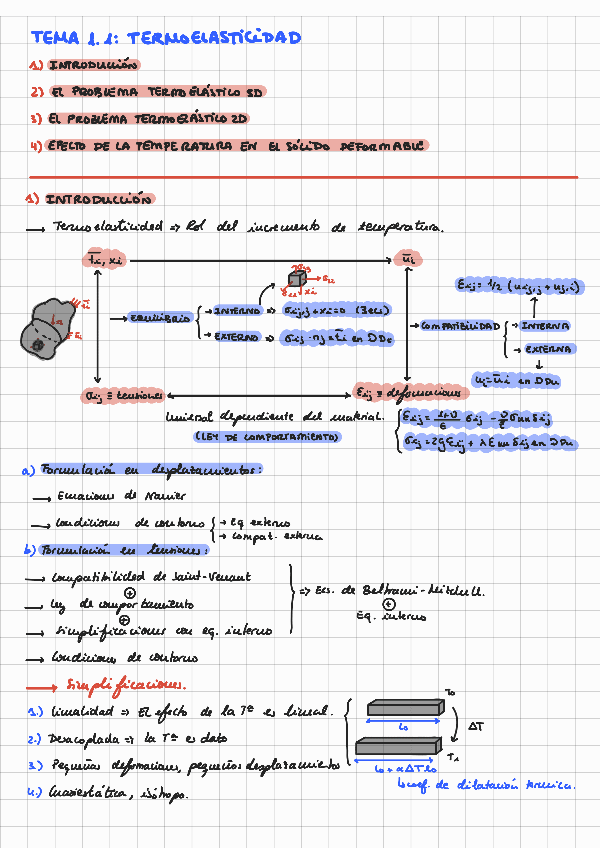 TEMA 1.1: TERMOELASTICIDAD
1) INTRODUCCIÓN
2) EL PROBLEMA TERMOELÁSTICO 3D
3) EL PROBLEMA TERMOELÁSTICO 2D
4) EFECTO DE LA TEMPERATURA EN EL SÓLIDO DEFORMABLE
1) INTRODUCCIÓN
→ Termoelasticidad ⇒ Rol del incremento de temperatura.
t̄i, xi → ūi
→ EQUILIBRIO { → INTERNO ⇒ σij,j + xi = 0 (3 ecs)
→ EXTERNO ⇒ σij · nj = t̄i en
→ COMPATIBILIDAD { → INTERNA
→ EXTERNA
εij = 1/2 (ui,j + uj,i)
ui = ūi en
σij ≡ tensiones ↔ εij ≡ deformaciones
dependiente del material.
(LEY DE COMPORTAMIENTO)
εij = 1+ν/E σij - ν/E σkk δij
σij = 2Gεij + λεkk δij en
a) Formulación en desplazamientos:
→ Ecuaciones de Navier
→ Condiciones de contorno { → Eq externo
→ Compat. externa
b) Formulación en tensiones:
→ Compatibilidad de Saint-Venant
⊕
→ Ley de comportamiento
⊕
→ Simplificaciones con eq. interno
⇒ Ecs. de Beltrami-Mitchell.
⊕
Eq. interno
→ Condiciones de contorno
→ Simplificaciones.
1.) Linealidad ⇒ El efecto de la Tª es lineal.
2.) Desacoplada ⇒ la Tª es dato
3.) Pequeñas deformaciones, pequeños desplazamientos
4.) Cuasiestática, isótropo.
T0
L0
ΔT
T1
L0 + αΔT L0
coef. de dilatación térmica.